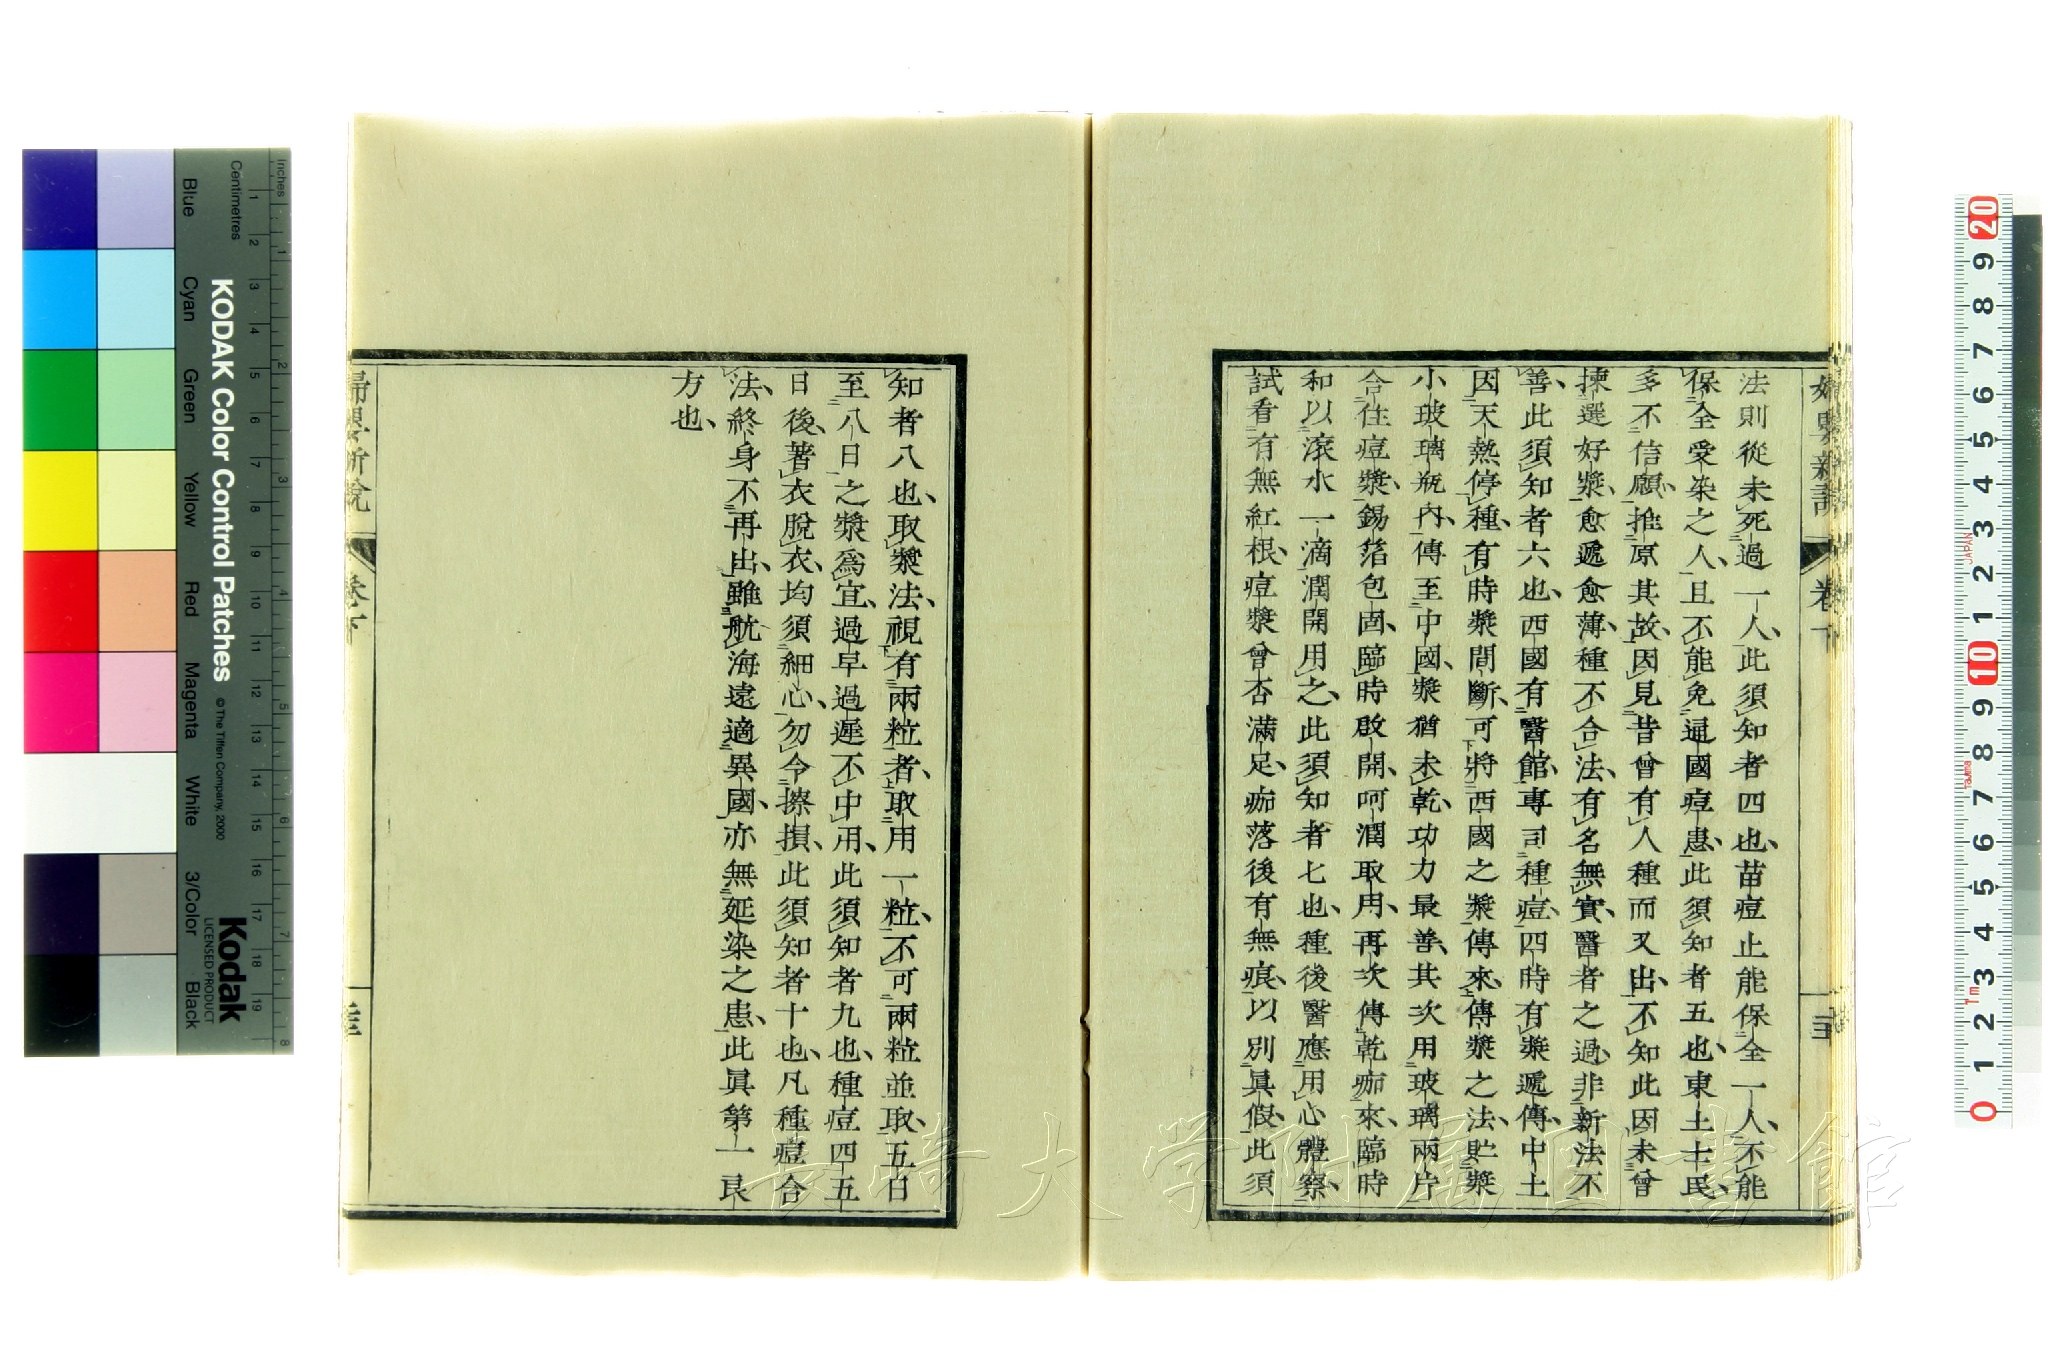 法則從未死過一人、此須知者四也、苗痘止能保全一人、不能
保全受染之人、且不能免逼國痘患、此須知者五也、東土士民、
多不信願、推原其故、因見昔曾有人種而又出、不知此因未曾
揀選好漿、愈遞愈薄、種不合法、有名無實、醫者之過、非新法不
善、此須知者六也、西國有醫館、專司種痘、四時有漿遞傳、中土
因天熱停種、有時漿間斷、可將西國之漿傳來、傳漿之法、貯漿
小玻璃瓶內、傳至中國、漿猶未乾、功力最善、其次用玻璃兩片
合住痘漿、錫箔包固、臨時啟開、呵潤取用、再次傳乾痂來、臨時
和以滾水一滴潤開用之、此須知者七也、種後醫應用心體察、
試看有無紅根、痘漿曾否滿足、痂落後有無痕、以別眞假、此須
知者八也、取漿法、視有兩粒者、取用一粒、不可兩粒並取、五日
至八日之漿爲宜、過早過遲不中用、此須知者九也、種痘四五
日後、著衣脫衣、均須細心、勿令擦損、此須知者十也、凡種痘合
法、終身不再出、雖航海遠適異國、亦無延染之患、此眞第一良
方也、
卷下
長崎大学附属図書館
KODAK Color Control Patches
© The Tiffen Company, 2000
Kodak
LICENSED PRODUCT
Inches
Centimetres
Blue
Cyan
Green
Yellow
Red
Magenta
White
3/Color
Black
1 2 3 4 5 6 7 8 9 10 11 12 13 14 15 16 17 18 19
1 2 3 4 5 6 7 8
20 9 8 7 6 5 4 3 2 1 10 9 8 7 6 5 4 3 2 1 0
JAPAN
Tajima
Tm